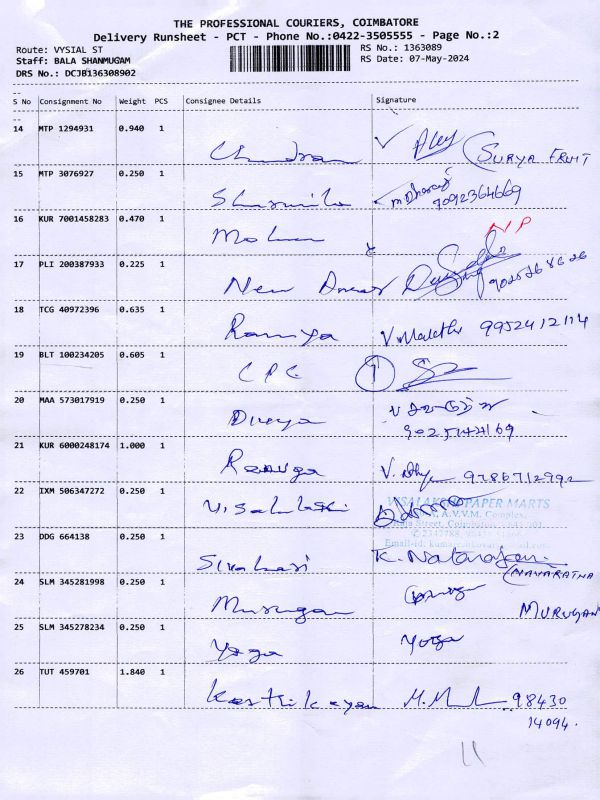 THE PROFESSIONAL COURIERS, COIMBATORE
Delivery Runsheet - PCT - Phone No.:0422-3505555 - Page No.:2
Route: VYSIAL ST
RS No.: 1363089
Staff: BALA SHANMUGAM
RS Date: 07-May-2024
DRS No.: DCJB136308902
S No Consignment No Weight PCS Consignee Details Signature
14 MTP 1294931 0.940 1
Chandran (SURYA FRUIT
15 MTP 3076927 0.250 1
Sharmila 9092364669
16 KUR 7001458283 0.470 1
Mohan NP
17 PLI 200387933 0.225 1
New
18 TCG 40972396 0.635 1
Ramya V. Malathi 9952412114
19 BLT 100234205 0.605 1
CPC
20 MAA 573017919 0.250 1
Divya
9025144169
21 KUR 6000248174 1.000 1
Renuga 9786712992
22 IXM 506347272 0.250 1
Visalakshi VISALAKSHI PAPER MARTS
A.V.V.M. Complex
23 DDG 664138 0.250 1
Sivahari K. Natarajan
(NAVARATNA
24 SLM 345281998 0.250 1
Murugan MURUGAN
25 SLM 345278234 0.250 1
Yoga Yoga
26 TUT 459701 1.840 1
Karthikeyan 98430
14094.
11